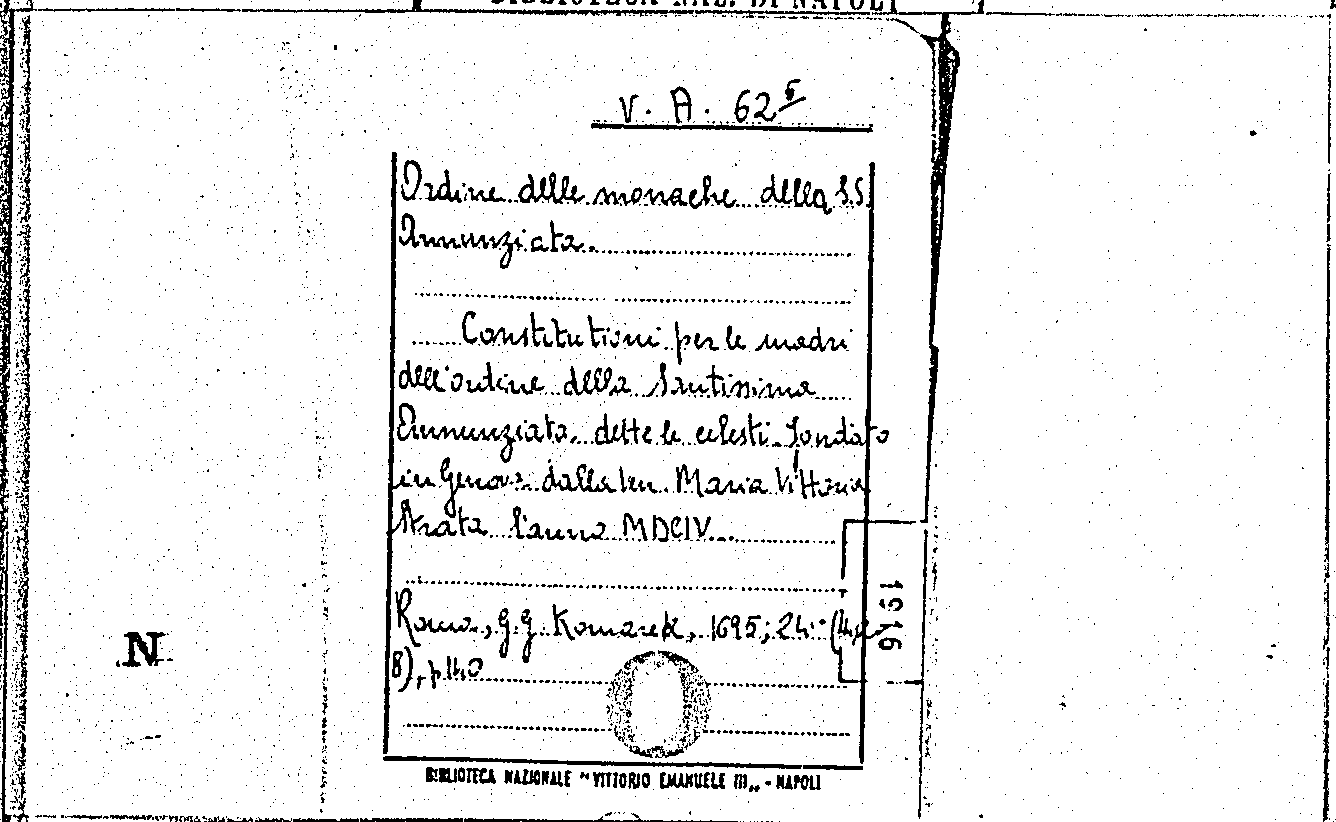 BIBLIOTECA NAZ. DI NAPOLI
V. A. 62⁵
Ordine delle monache della S.S.
Annunziata.
Constitutioni per le madri
dell'ordine della Santissima
Annunziata dette le celesti fondato
in Genova dalla ven. Maria Vittoria
Strata l'anno MDCIV...
Roma, G.G. Komarek, 1695; 24°
8), p. 140
1916
N
BIBLIOTECA NAZIONALE "VITTORIO EMANUELE III„ - NAPOLI